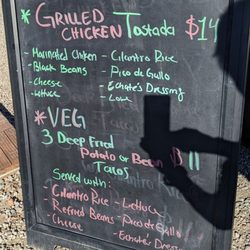 * GRILLED
CHICKEN Tostada $14
- Marinated Chicken - Cilantro Rice
- Black Beans - Pico de Gallo
- Cheese - Eohate's Dressing
- Lettuce - Love
* VEG
3 Deep Fried
Potato or Bean $11
Tacos
Served with:
- Cilantro Rice - Lettuce
- Refried Beans - Pico de Gallo
- Cheese